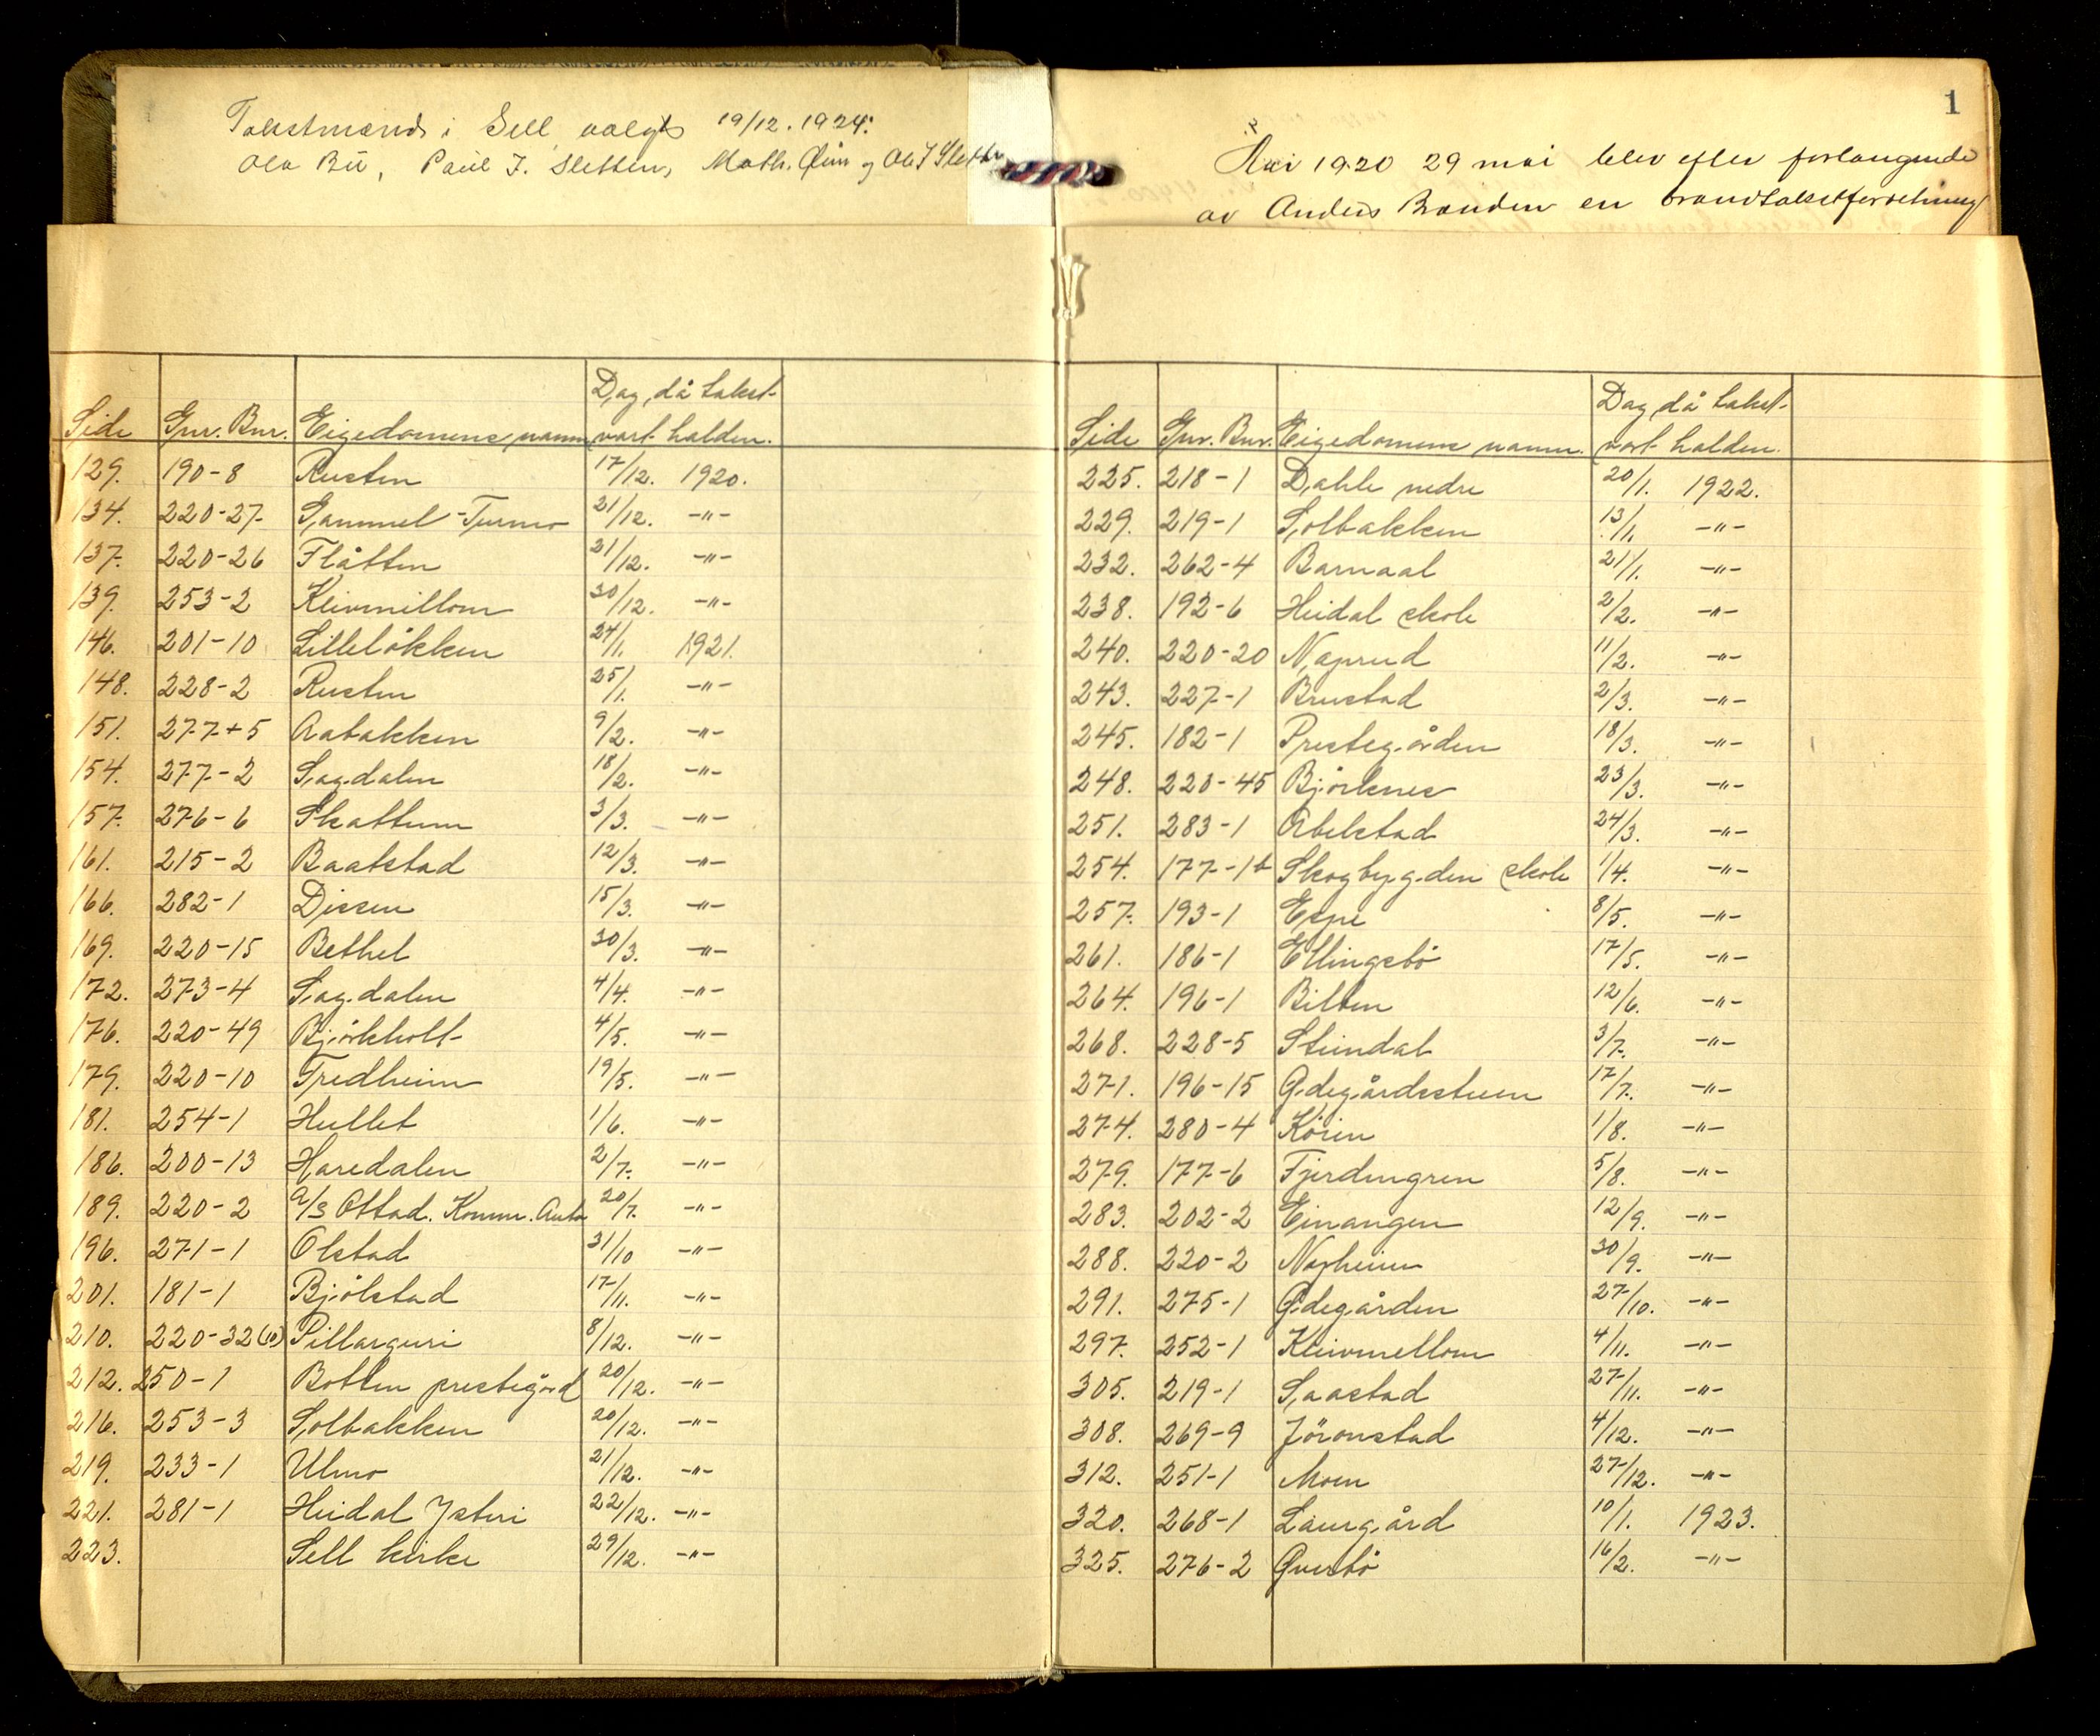 Takstmænd i Sell valgt 19/12. 1924:
Ola Bu, Paul J. Sletten, Math. Øien og Ole J Sletten
1
Aar 1920 29 mai blev efter forlangende
av Anders Randen en brandtakstforretning
Side Gnr. Bnr. Eigedomens namn Dag, då takst- vart halden.
129. 190-8 Rusten 17/12. 1920.
134. 220-27 Gammel-Turmo 21/12. -"-
137. 220-26 Flåtten 21/12. -"-
139. 253-2 Kleivmillom 30/12. -"-
146. 201-10 Lilleløkken 24/1. 1921.
148. 228-2 Rusten 25/1. -"-
151. 277+5 Aabakken 9/2. -"-
154. 277-2 Sagdalen 18/2. -"-
157. 276-6 Skattum 3/3. -"-
161. 215-2 Baatstad 12/3. -"-
166. 282-1 Dissen 15/3. -"-
169. 220-15 Bethel 30/3. -"-
172. 273-4 Sagdalen 4/4. -"-
176. 220-49 Bjørkholt 4/5. -"-
179. 220-10 Fredheim 19/5. -"-
181. 254-1 Hullet 1/6. -"-
186. 200-13 Haredalen 2/7. -"-
189. 220-2 A/S Ottad. Komm. Auto 20/7. -"-
196. 271-1 Olstad 31/10 -"-
201. 181-1 Bjølstad 17/11. -"-
210. 220-32(10) Pillarguri 8/12. -"-
212. 250-1 Botten prestegård 20/12. -"-
216. 253-3 Solbakken 20/12. -"-
219. 233-1 Ulmo 21/12. -"-
221. 281-1 Heidal Ysteri 22/12. -"-
223. Sell kirke 29/12. -"-
Side Gnr. Bnr. Eigedomens namn. Dag, då takst- vart halden.
225. 218-1 Dahle nedre 20/1. 1922.
229. 219-1 Solbakken 13/1. -"-
232. 262-4 Barnaal 21/1. -"-
238. 192-6 Heidal skole 2/2. -"-
240. 220-20 Nyprud 11/2. -"-
243. 227-1 Brustad 2/3. -"-
245. 182-1 Prestegården 18/3. -"-
248. 220-45 Bjørknes 23/3. -"-
251. 283-1 Abelstad 24/3. -"-
254. 177-1b Skogbygden skole 1/4. -"-
257. 193-1 Espe 8/5. -"-
261. 186-1 Ellingsbø 17/5. -"-
264. 196-1 Bilben 12/6. -"-
268. 228-5 Steindal 3/7. -"-
271. 196-15 Ødegårdssteen 17/7. -"-
274. 280-4 Køien 1/8. -"-
279. 177-6 Fjerdingren 5/8. -"-
283. 202-2 Einangen 12/9. -"-
288. 220-2 Nyheim 30/9. -"-
291. 275-1 Ødegården 27/10. -"-
297. 252-1 Kleivmellom 4/11. -"-
305. 219-1 Saastad 27/11. -"-
308. 269-9 Jøronstad 4/12. -"-
312. 251-1 Moen 27/12. -"-
320. 268-1 Laurgård 10/1. 1923.
325. 276-2 Øverbø 16/2. -"-